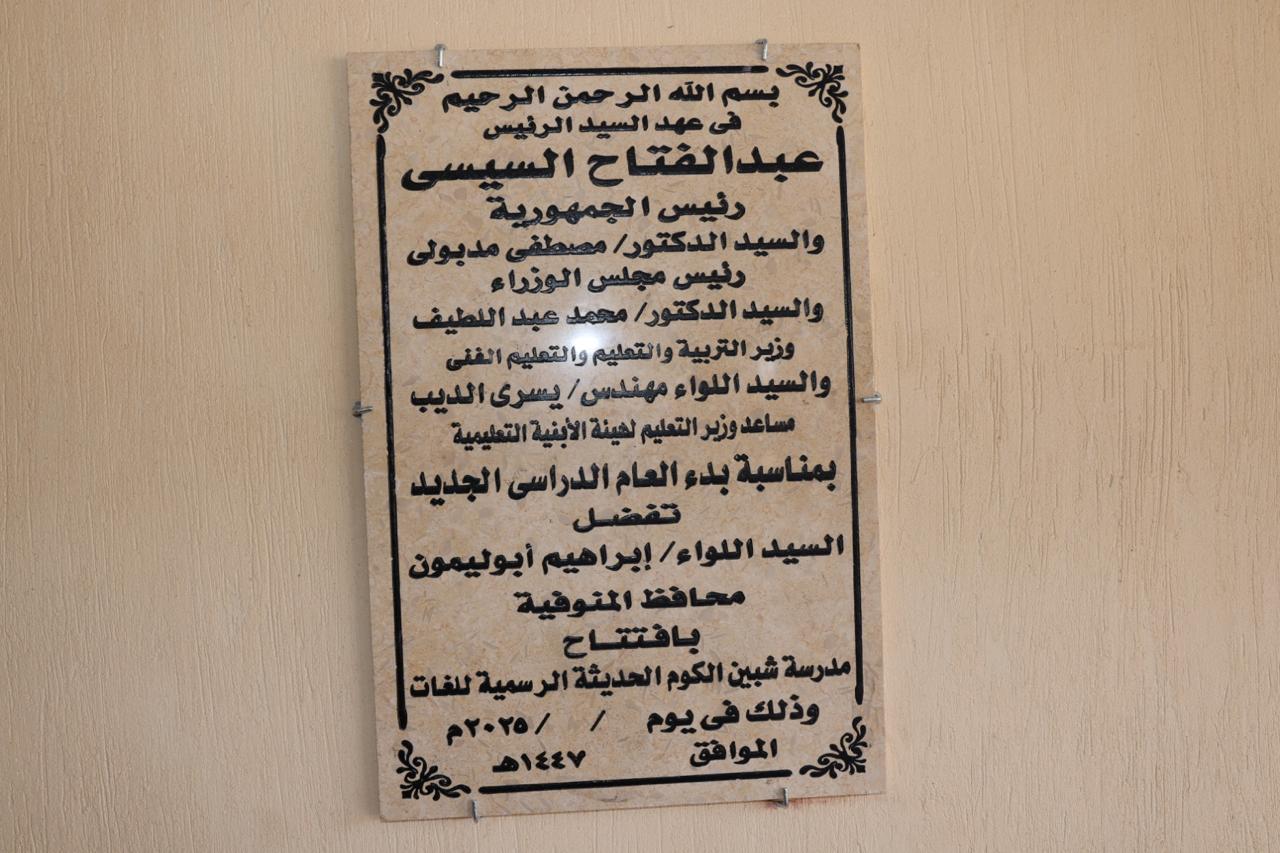 بسم الله الرحمن الرحيم
فى عهد السيد الرئيس
عبدالفتاح السيسى
رئيس الجمهورية
والسيد الدكتور/ مصطفى مدبولى
رئيس مجلس الوزراء
والسيد الدكتور/ محمد عبد اللطيف
وزير التربية والتعليم والتعليم الفنى
والسيد اللواء مهندس/ يسرى الديب
مساعد وزير التعليم لهيئة الأبنية التعليمية
بمناسبة بدء العام الدراسى الجديد
تفضل
السيد اللواء/ إبراهيم أبوليمون
محافظ المنوفية
بافتتاح
مدرسة شبين الكوم الحديثة الرسمية للغات
وذلك فى يوم / / ٢٠٢٥م
الموافق ١٤٤٧هـ